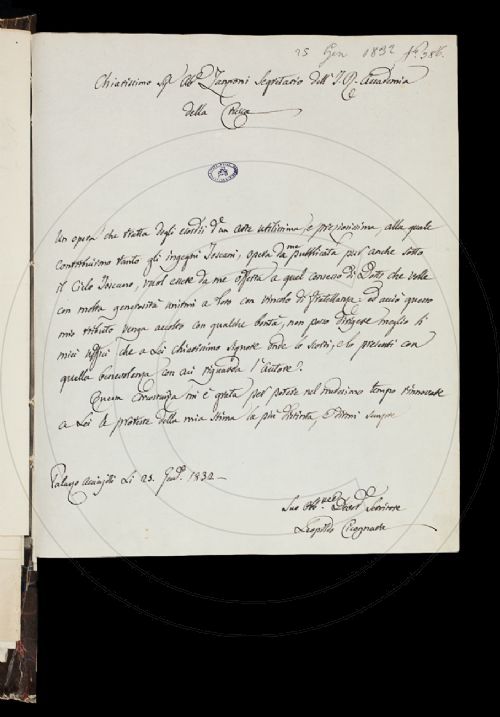 25 Gen 1832
Chiarissimo Sigr Abe Zannoni Segretario dell' I. R. Accademia
della Crusca
Un opera che tratta degli esordii d'un arte utilissima, e preziosissima, alla quale
contribuirono tanto gli ingegni Toscani, opera da me pubblicata pur anche sotto
il Cielo Toscano, vuol essere da me offerta a quel consesso di Dotti che volle
con molta generosità unirmi a loro con vincolo di fratellanza: ed acciò questo
mio tributo venga accolto con qualche bontà, non posso dirigere meglio li
miei uffici che a Lei chiarissimo Signore onde lo scorti, e lo presenti con
quella benevolenza con cui riguarda l'autore.
Questa circostanza mi è grata per potere nel medesimo tempo rinnovare
a Lei le proteste della mia stima la più distinta, e dirmi sempre
Palazzo Acciajoli Li 25. Gen. 1832
Suo Servitore
Leopoldo Cicognara